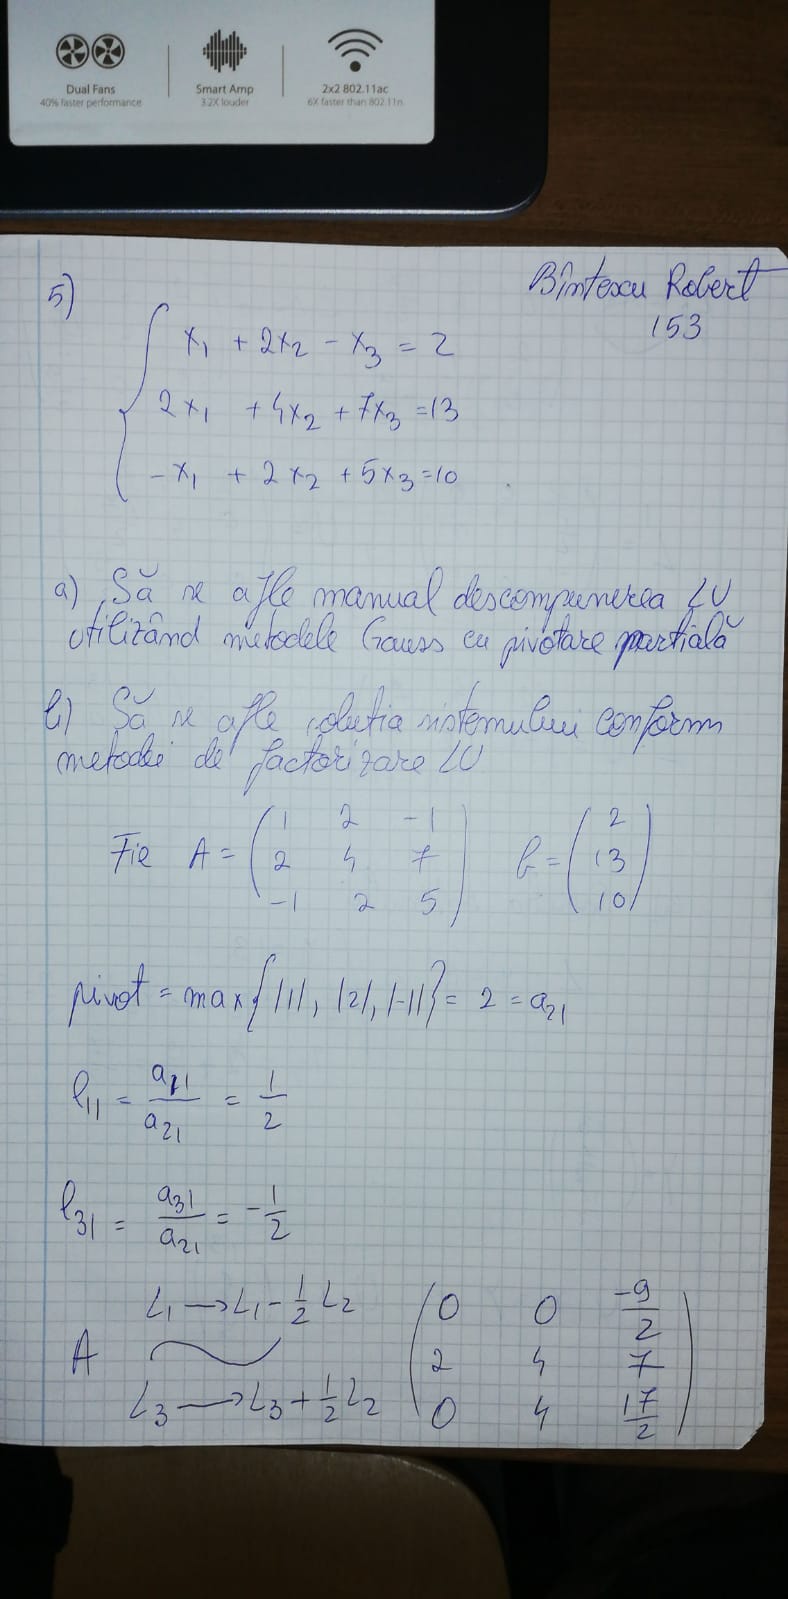 Dual Fans
40% faster performance
Smart Amp
3.2X louder
2x2 802.11ac
6X faster than 802.11n
Bîntescu Robert
153
5)
x₁ + 2x₂ - x₃ = 2
2x₁ + 4x₂ + 7x₃ = 13
-x₁ + 2x₂ + 5x₃ = 10
a) Să se afle manual descompunerea LU
utilizând metodele Gauss cu pivotare parțială
b) Să se afle soluția sistemului conform
metodei de factorizare LU
Fie A = ( 1 2 -1 ; 2 4 7 ; -1 2 5 ) b = ( 2 ; 13 ; 10 )
pivot = max{|1|, |2|, |-1|} = 2 = a₂₁
l₁₁ = a₁₁/a₂₁ = 1/2
l₃₁ = a₃₁/a₂₁ = -1/2
A L₁ → L₁ - 1/2 L₂
L₃ → L₃ + 1/2 L₂ ( 0 0 -9/2 ; 2 4 7 ; 0 4 17/2 )